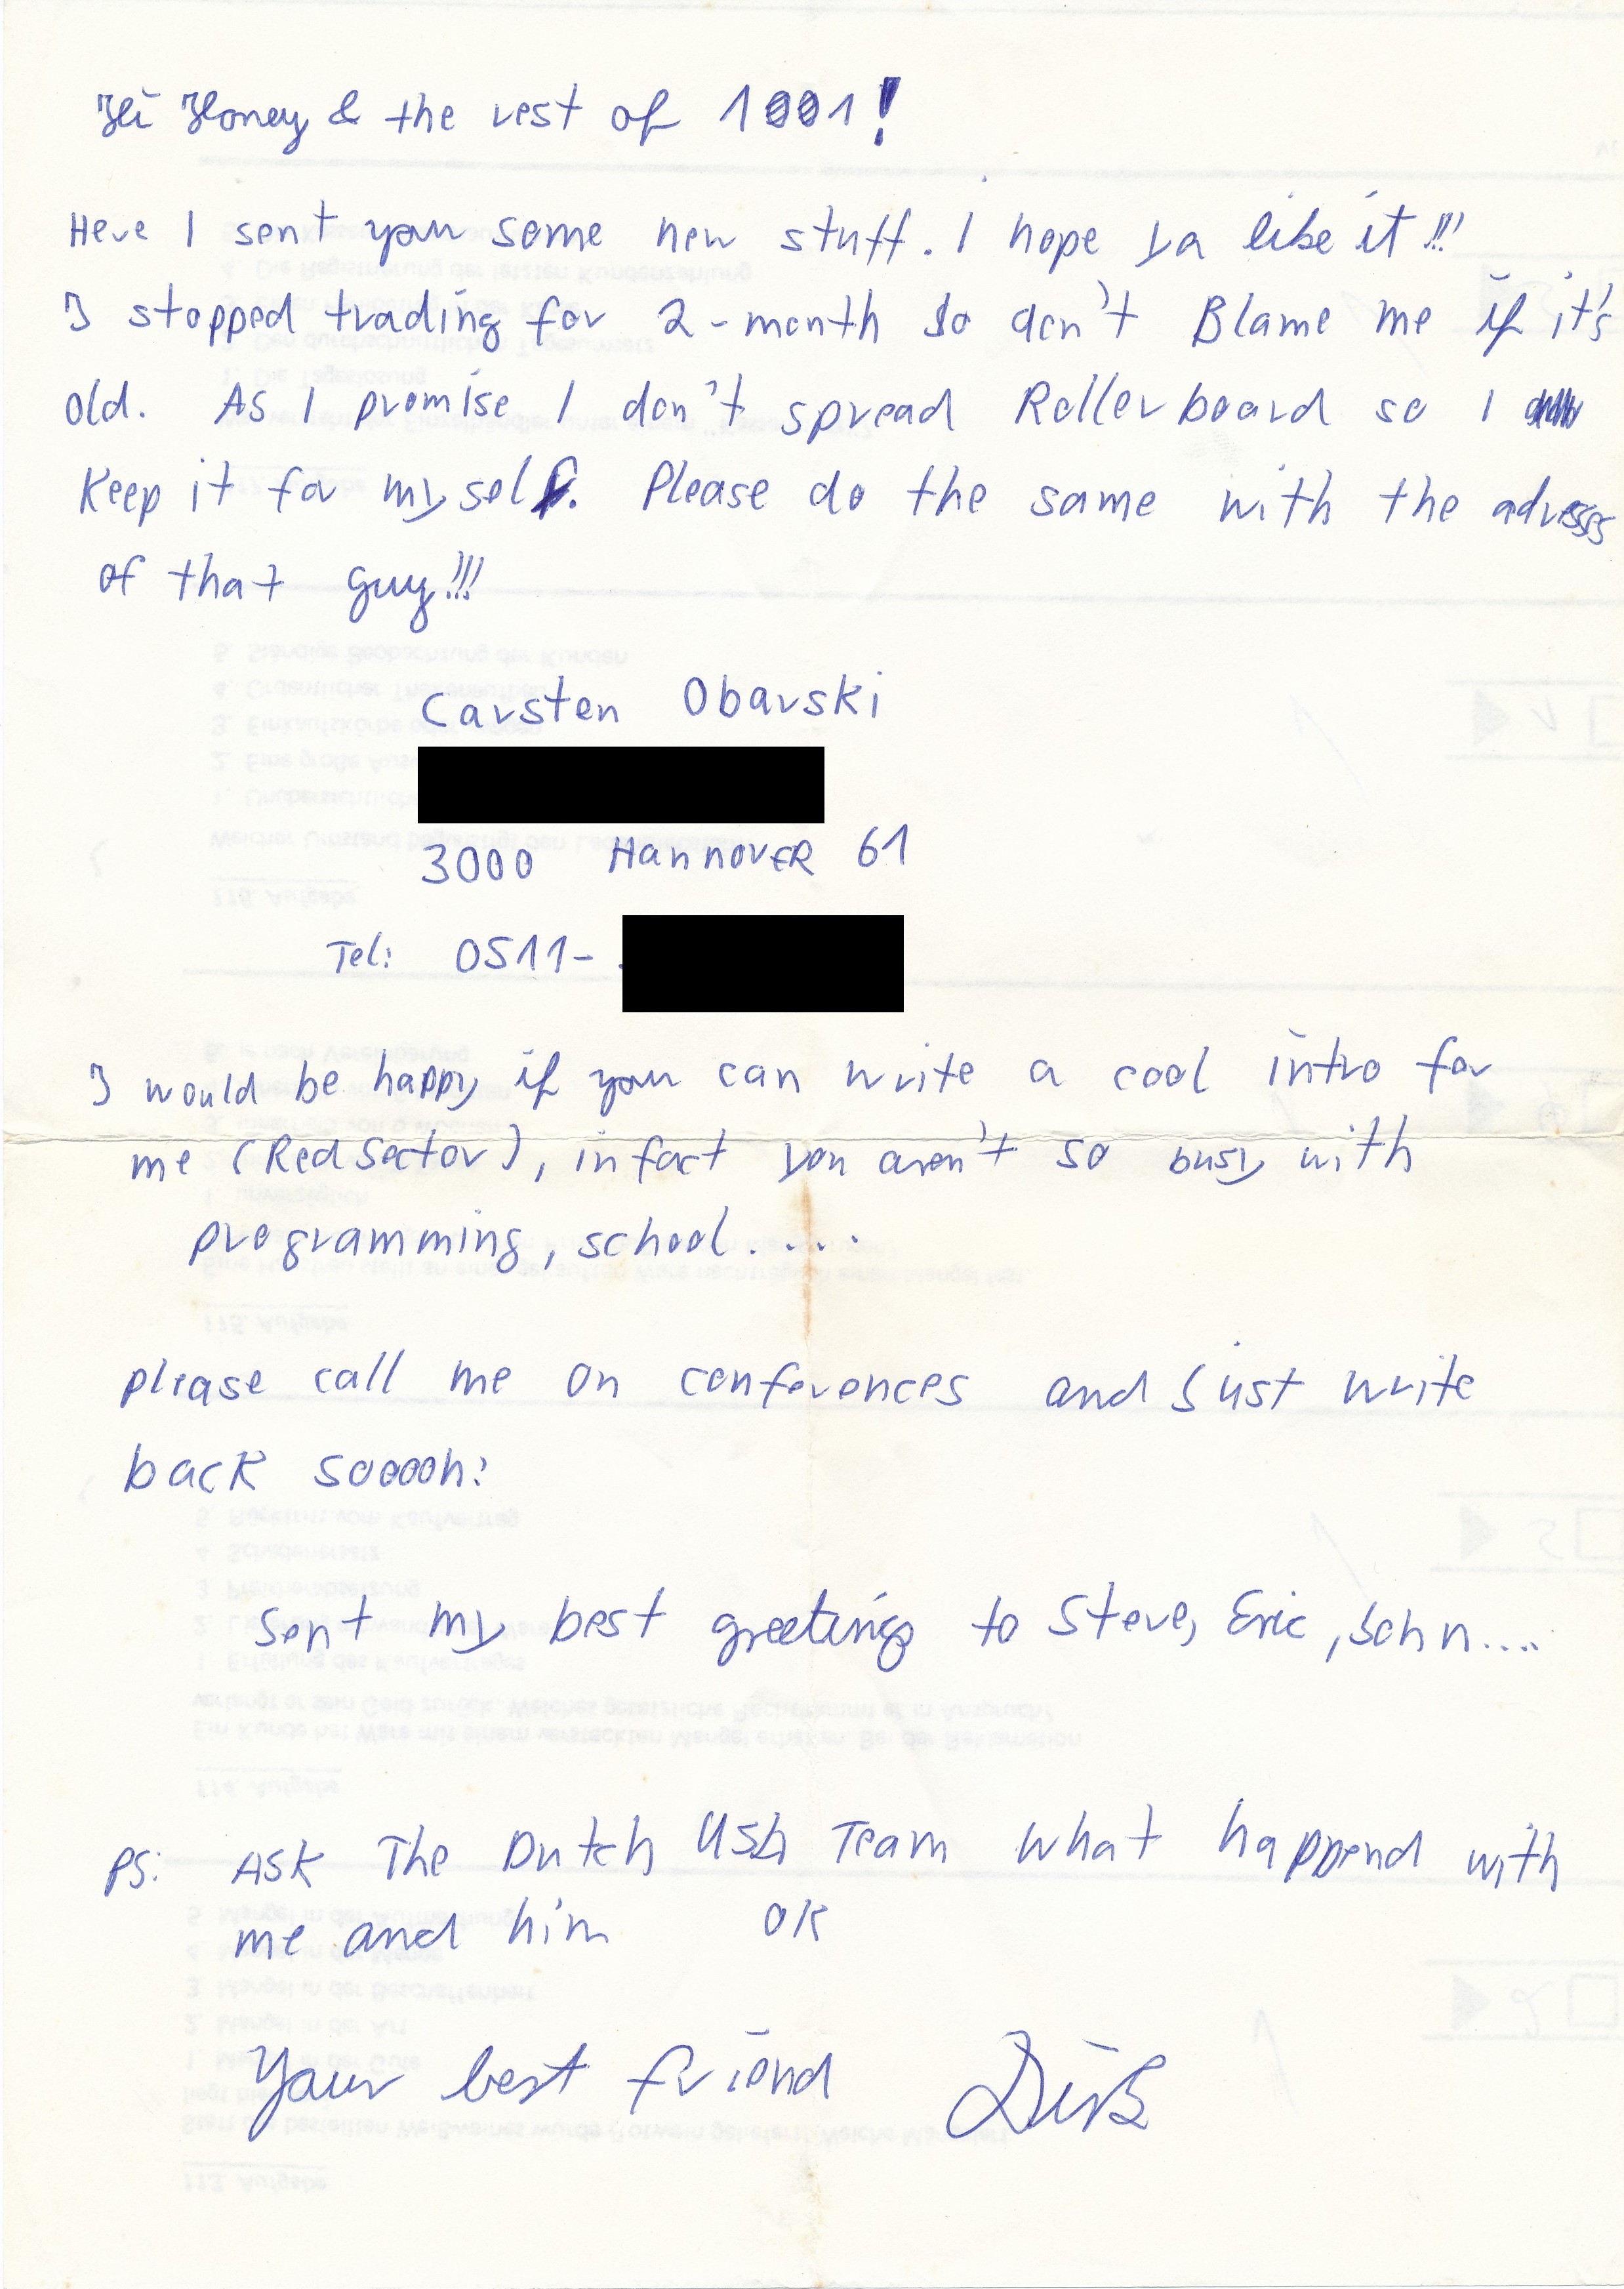 Hi Honey & the rest of 1001!
Here I sent you some new stuff. I hope ya like it!!!
I stopped trading for 2-month so don't Blame me if it's
old. As I promise I don't spread Rollerboard so I
Keep it for myself. Please do the same with the adress
of that guy!!!
Carsten Obarski
3000 Hannover 61
Tel: 0511-
I would be happy if you can write a cool intro for
me (Red Sector), in fact you aren't so busy with
programming, school.....
please call me on conferences and just write
back sooooh:
Sent my best greetings to Steve, Eric, John....
PS: Ask The Dutch USA Team what happend with
me and him OK
Your best friend Dirk